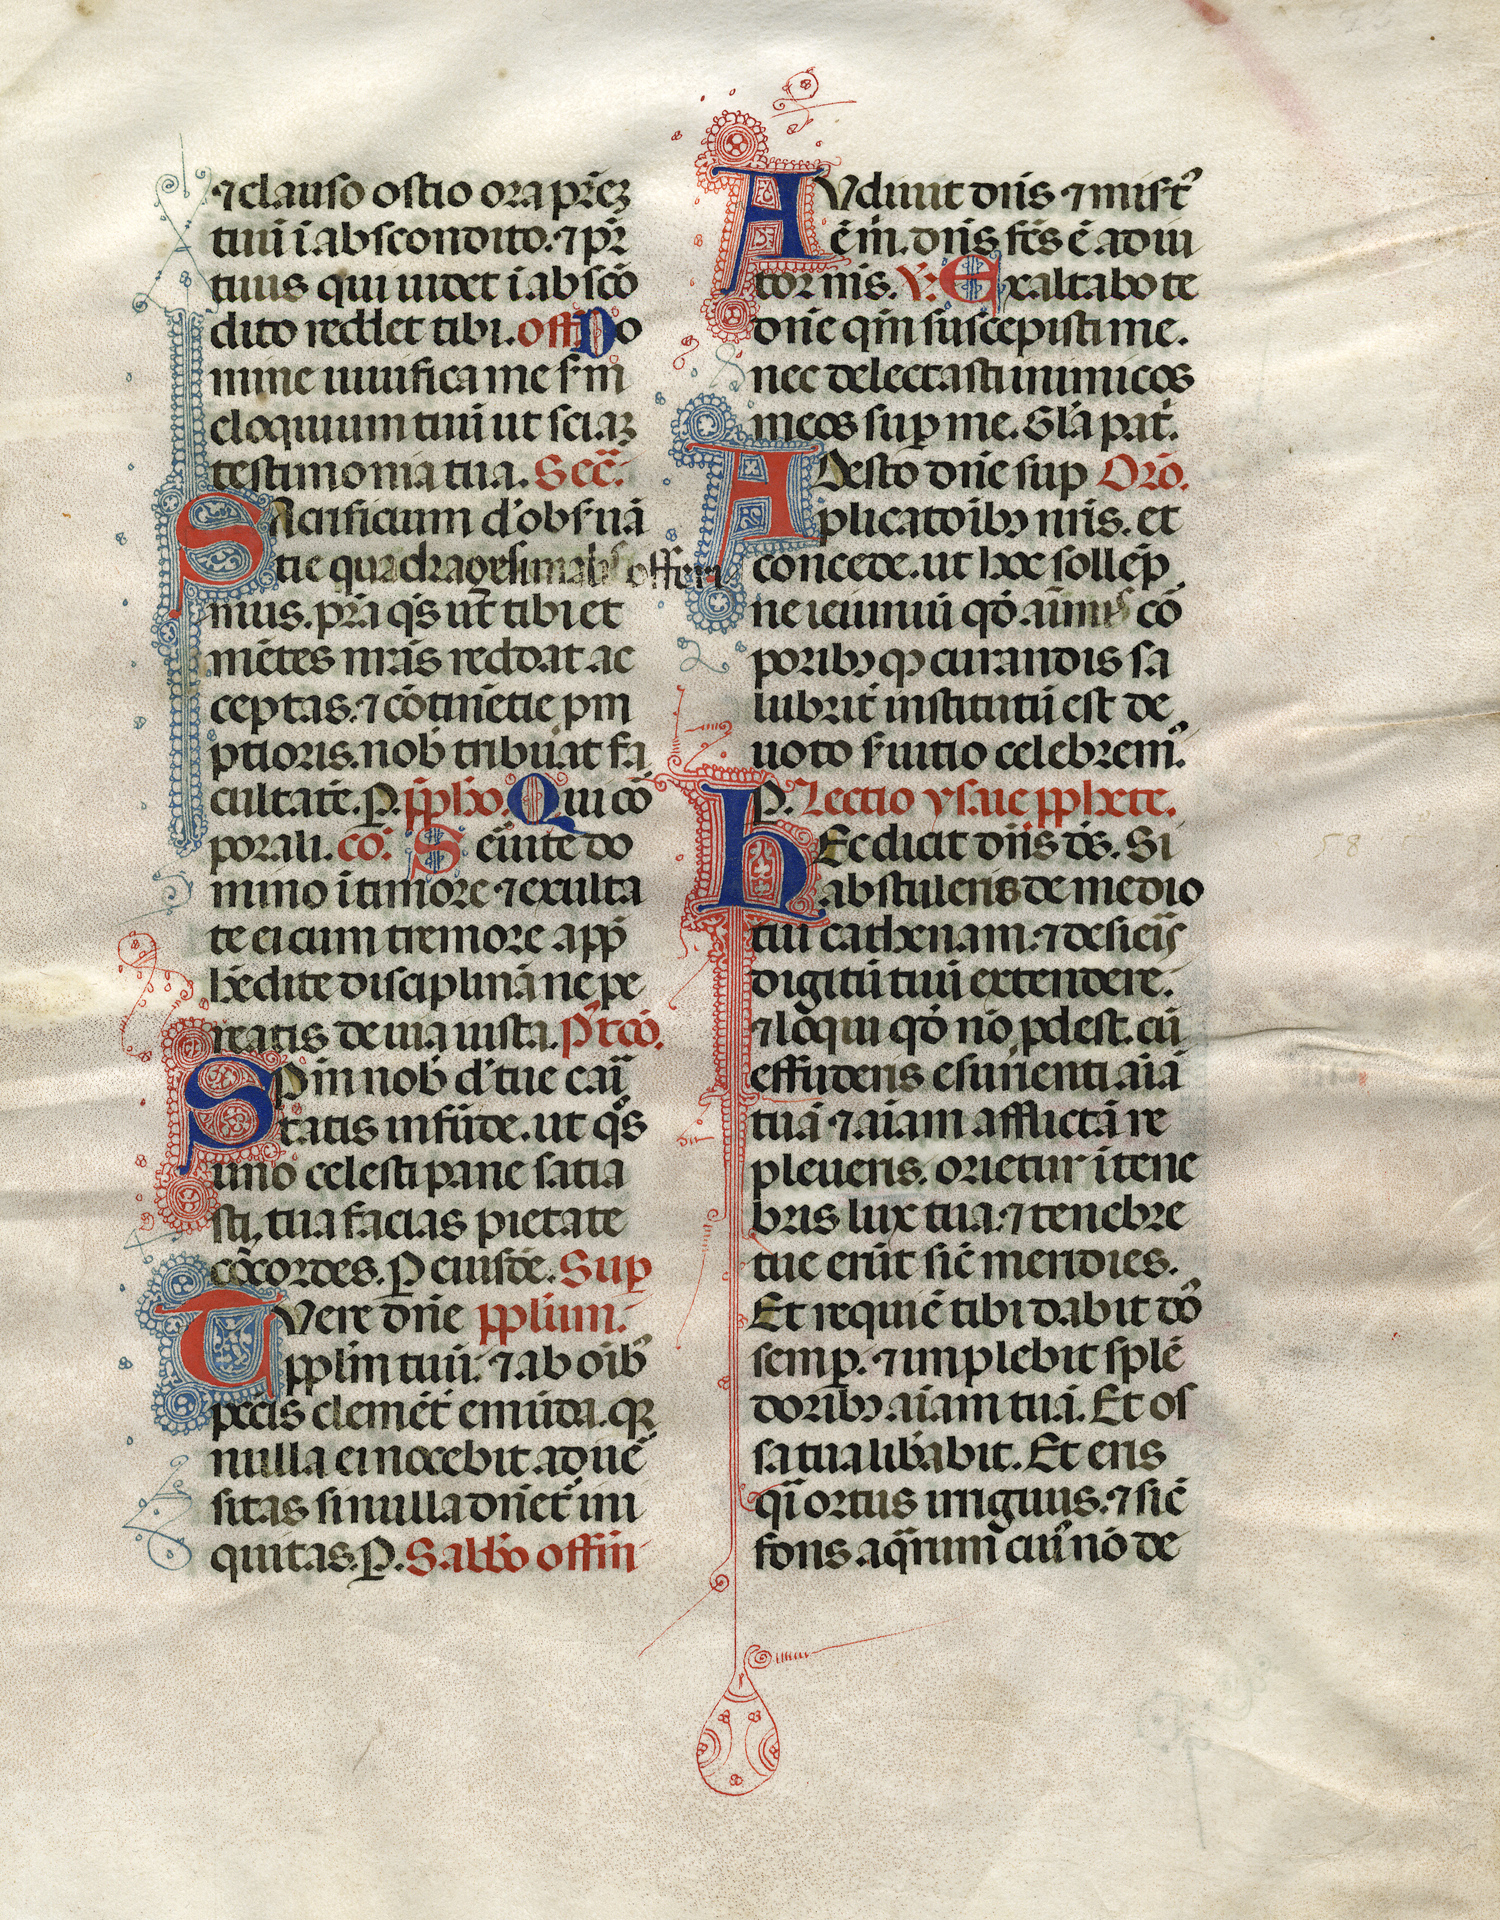 ⁊ clauso ostio ora pr̄ez
tuū ī abscondito. ⁊ pr̄
tuus qui uidet ī abscō
dito reddet tibi. off Do
mine uiuifica me scm̄
eloquium tuū ut sciaz
testimonia tua. Sec̄.
SAcrificium d' obs'uā
tie quadragesimał' offeri
mus. pr̄a q̄s ut tibi et
mētes nr̄as reddat ac
ceptas. ⁊ cōtinētie pm
ptioris. nob̄ tribuat fa
cultatē. P. pp̄ho. Qui cō
porali. cō. Seruite do
mino ī timore ⁊ exulta
te ei cum tremore app̄
hēdite disciplinā ne pe
reatis de uia iusta. P'tcō.
SPm̄ nob̄ d' tue cari
tatis infūde. ut q̄s
uno celesti pane satia
sti, tua facias pietate
cōcordes. P eiusdē. Sup
TVere dn̄e pplūm.
pplm̄ tuū. ⁊ ab oīb'
pcc̄is clemēt' emūda. qꝛ
nulla ei nocebit aduē
sitas si nulla dn̄et' ini
quitas. P. Sabb̄o offin
AVdiuit dn̄s ⁊ mis't'
ē m̄. dn̄s fc̄s ē adiu
tor m̄s. V: Exaltabo te
dn̄e qm̄ suscepisti me.
nec delectasti inimicos
meos sup me. Gła pat'.
ADesto dn̄e sup Orō.
plicatōibꝫ nr̄is. et
concede. ut hoc sollēp
ne ieiuniū qđ aīmis cō
poribꝫ qꝫ curandis sa
lubrit' institutū est de
uoto s'uitio celebrem'.
P. Lectio ysaie pphete.
hEc dicit dn̄s ds̄. Si
abstuleris de medio
tui cathenam. ⁊ desieris
digitū tuū extendere.
⁊ loqui qđ nō pdest. cū
effuderis esurienti aīā
tuā ⁊ aīam afflictā re
pleueris. orietur ī tene
bris lux tua. ⁊ tenebre
tue erūt sic̄ meridies.
Et requiē tibi dabit dō
semp. ⁊ implebit splē
doribꝫ aīam tuā. Et os
sa tua lib̄abit. Et eris
q̄i ortus irriguus. ⁊ sic̄
fons aq̄rum cui' nō de
58